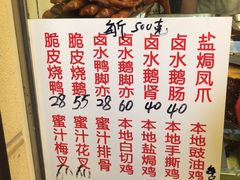 每斤500克
脆皮烧鸭 28
脆皮烧鹅 55
卤水鸭脚亦 28
卤水鹅脚亦 60
卤水鹅肾 40
卤水鹅肠 40
盐焗凤爪
蜜汁梅叉
蜜汁花叉
蜜汁排骨
本地白切鸡
本地盐焗鸡
本地手撕鸡
本地豉油鸡